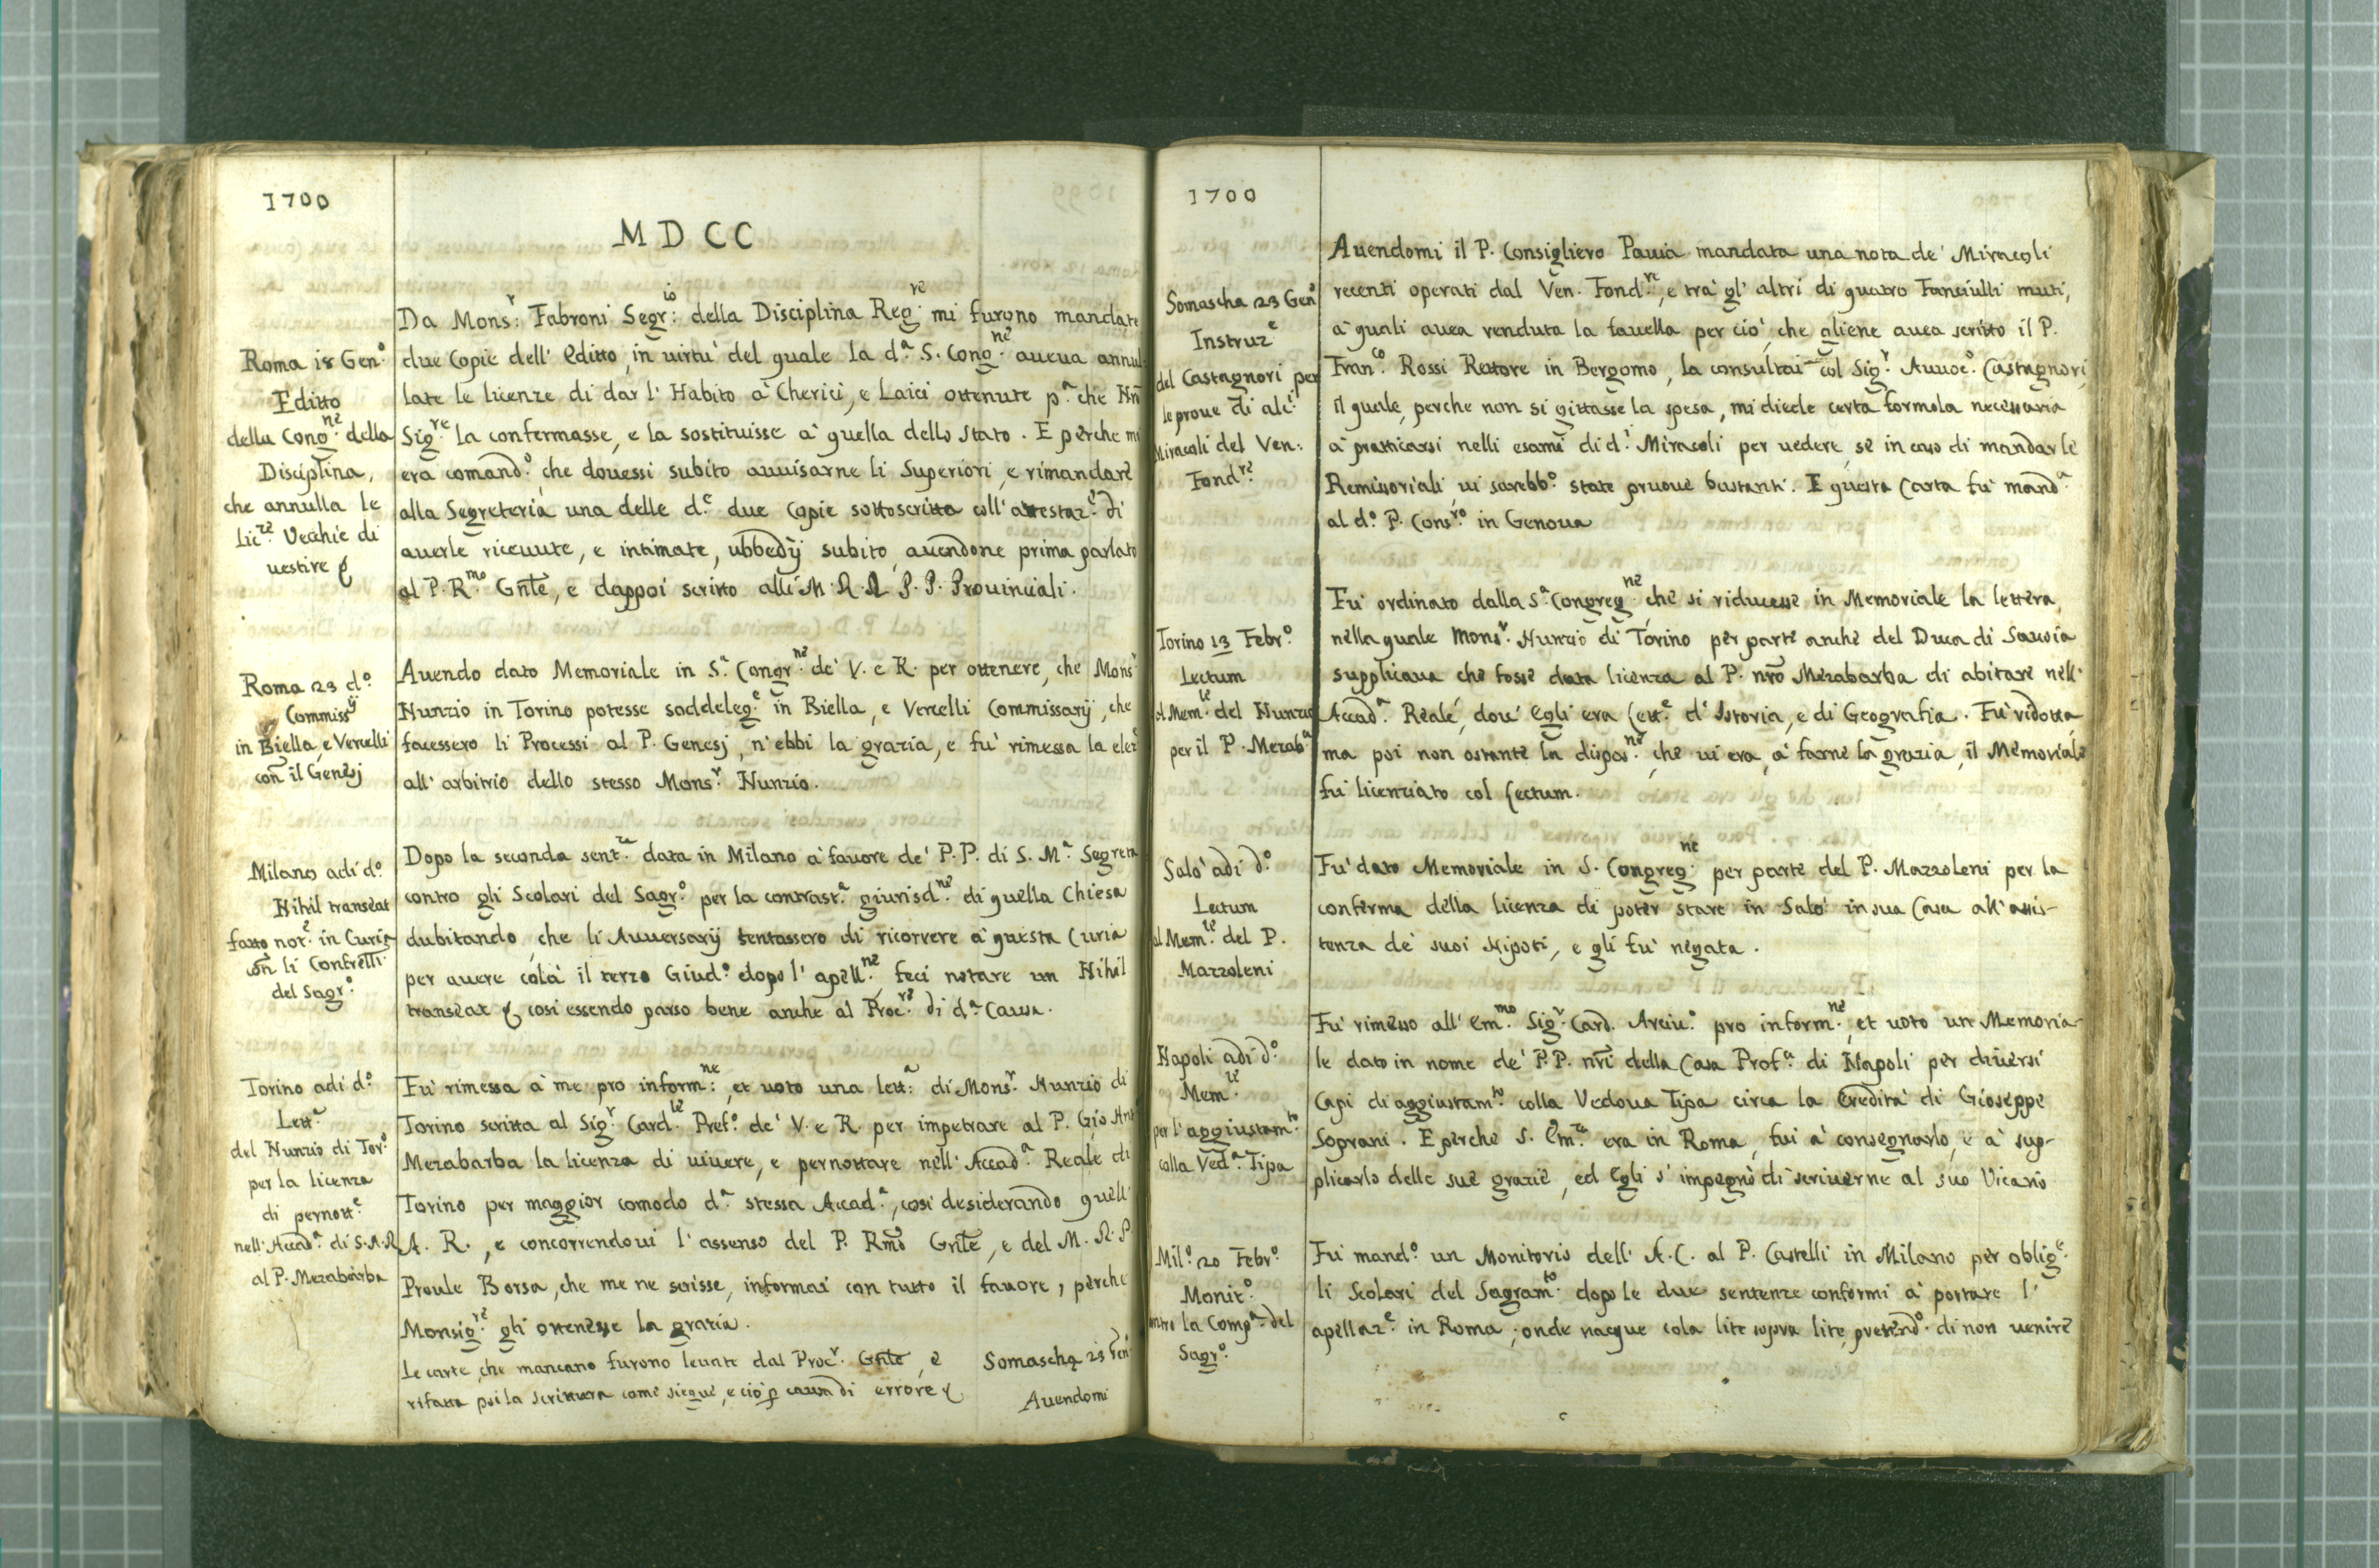 1700
MDCC
Da Mons.r Fabroni Segr.io della Disciplina Reg.re mi furono mandate
Roma 18 Gen.o
Editto
della Cong.ne della
Disciplina,
che annulla le
Lic.ze Vecchie di
vestire
due Copie dell' Editto, in virtù del quale la d.a S. Cong.ne aueua annul
late le licenze di dar l' Habito à Cherici, e Laici ottenute p.a che Nrō
Sig.re la confermasse, e la sostituisse à quella dello stato. E perche mi
era comand.o che douessi subito auuisarne li Superiori, e rimandare
alla Segreteria una delle d.e due Copie sottoscritta coll' attestaz.e di
auerle riceuute, e intimate, ubbedij subito, auendone prima parlato
al P. R.mo Gn̄le, e dappoi scritto alli M. R. R. P. P. Prouinciali.
Roma 23 d.o
Commiss.ij
in Biella, e Vercelli
con il Genesj
Auendo dato Memoriale in S.a Congr.ne de' V. e R. per ottenere, che Mons.r
Nunzio in Torino potesse soddeleg.e in Biella, e Vercelli Commissarij, che
facessero li Processi al P. Genesj, n' ebbi la grazia, e fu' rimessa la elez.e
all' arbitrio dello stesso Mons.r Nunzio.
Milano adi d.o
Nihil transeat
fatto not.e in Curia
con li Confrelli
del Sagr.o
Dopo la seconda sent.za data in Milano à fauore de' P.P. di S. M.a Segreta
contro gli Scolari del Sagr.o per la contrast.a giurisd.ne di quella Chiesa
dubitando, che li Auuersarij tentassero di ricorrere à questa Curia
per auere colà il terzo Giud.o dopo l' apell.ne, feci notare un Nihil
transeat & cosi essendo parso bene anche al Proc.re di d.a Causa.
Torino adi d.o
Lett.a
del Nunzio di Tor.o
per la licenza
di pernott.e
nell' Accad.a di S. A. R.
al P. Mezabarba
Fù rimessa à me pro inform.ne, et uoto una lett.a di Mons.r Nunzio di
Torino scritta al Sig.r Card.le Pref.o de' V. e R. per impetrare al P. Gio Ant.
Mezabarba la licenza di uiuere, e pernottare nell' Accad.a Reale di
Torino per maggior comodo d.a stessa Accad.a, cosi desiderando quell'
A. R., e concorrendoui l' assenso del P. Rm̄o Gn̄le, e del M. R. P.
Proule Borsa, che me ne scrisse, informai con tutto il fauore, perche
Monsig.re gli ottenesse la grazia.
Le carte, che mancano furono leuate dal Proc.r Gn̄le, e
rifatta poi la scrittura come siegue, e ciò p causa di errore &
Somascha 23 Gen.
Auendomi
1700
Somascha 23 Gen.o
Instruz.e
del Castagnori per
le proue di alc.i
Miracoli del Ven.
Fond.re
Auendomi il P. Consigliero Pauia mandata una nota de' Miracoli
recenti operati dal Ven. Fond.re, e trà gl' altri di quatro Fanciulli muti,
à quali auea renduta la fauella per ciò, che gliene auea scritto il P.
Fran.co Rossi Rettore in Bergomo, la consultai col Sig.r Auuoc.o Castagnori,
il quale, perche non si gittasse la spesa, mi diede certa formola necessaria
à pratticarsi nelli esami di d.i Miracoli per uedere, se in caso di mandar le
Remissoriali, ui sarebb.o state pruoue bastanti. E questa Carta fu' mand.a
al d.o P. Cons.ro in Genoua
Torino 13 Febr.o
Lectum
al Mem.le del Nunzio
per il P. Mezab.a
Fu' ordinato dalla S.a Congreg.ne che si riducesse in Memoriale la lettera,
nella quale Mons.r Nunzio di Torino per parte anche del Duca di Sauoia
supplicaua che fosse data licenza al P. nrō Mezabarba di abitare nell'
Accad.a Reale, dou' Egli era Lett.e d' Istoria, e di Geografia. Fu' ridotta,
ma poi non ostante la dispos.ne, che ui era, à farne la grazia, il Memoriale
fu licenziato col Lectum.
Salò adi d.o
Lectum
al Mem.le del P.
Mazzoleni
Fu' dato Memoriale in S. Congreg.ne per parte del P. Mazzoleni per la
conferma della licenza di poter stare in Salò in sua Casa all' assis-
tenza de' suoi Nipoti, e gli fu' negata.
Napoli adi d.o
Mem.le
per l' aggiustam.to
colla Ved.a Tipa
Fu' rimesso all' Em.mo Sig.r Card. Arciu.o pro inform.ne, et uoto un Memoria-
le dato in nome de' P.P. nr̄i della Casa Prof.a di Napoli per diuersi
Capi di aggiustam.to colla Vedoua Tipa circa la Eredità di Gioseppe
Soprani. E perche S. Em.za era in Roma, fui à consegnarlo, e à sup-
plicarlo delle sue grazie, ed Egli s' impegnò di scriuerne al suo Vicario
Mil.o 20 Febr.o
Monit.o
contro la Comp.a del
Sagr.o
Fu' mand.o un Monitorio dell' A. C. al P. Castelli in Milano per oblig.e
li Scolari del Sagram.to dopo le due sentenze conformi à portare l'
apellaz.e in Roma; onde nacque cola lite sopra lite, pretend.o di non uenire